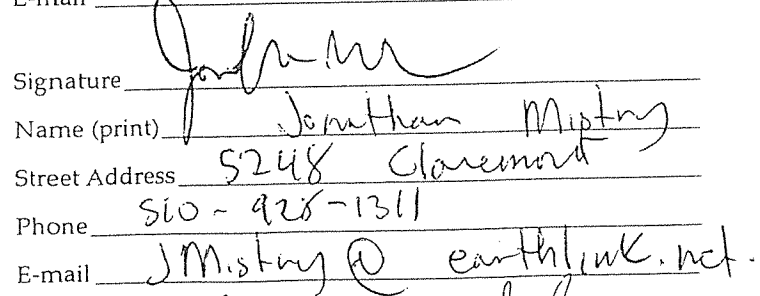 E-mail
Signature
Name (print) Jonathan Mistry
Street Address 5248 Claremont
Phone 510-928-1311
E-mail JMistry@earthlink.net.